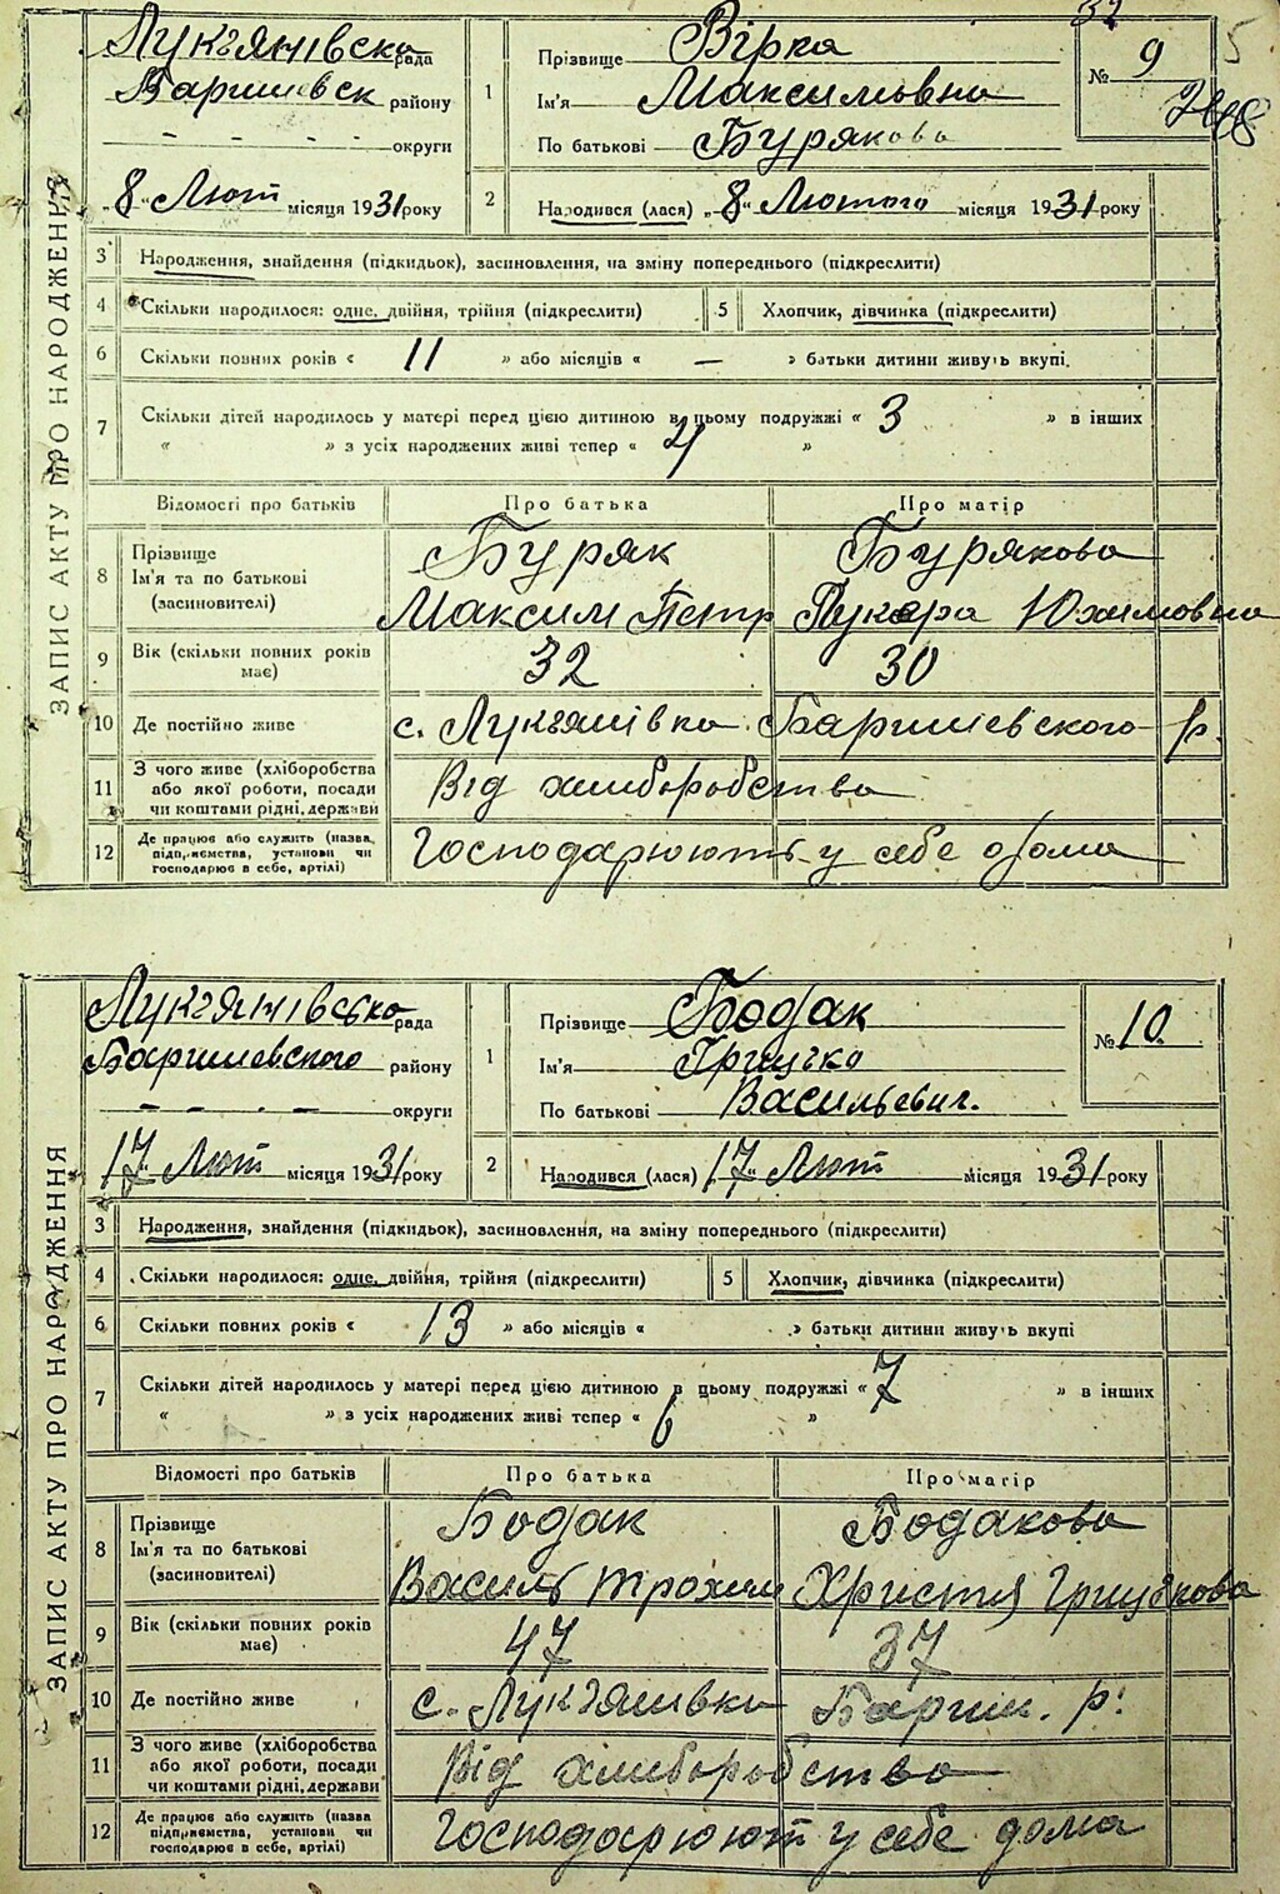 ЗАПИС АКТУ ПРО НАРОДЖЕННЯ
Лукъянівска рада
Баришевск району
- - - - округи
„8“ Лют місяця 1931 року
1 Прізвище Вірка
Ім'я Максимовна
По батькові Бурякова
№ 9
5
2 Народився (лася) „8“ Лютого місяця 1931 року
3 Народження, знайдення (підкидьок), засиновлення, на зміну попереднього (підкреслити)
4 Скільки народилося: одне, двійня, трійня (підкреслити) 5 Хлопчик, дівчинка (підкреслити)
6 Скільки повних років « 11 » або місяців « — » батьки дитини живуть вкупі.
7 Скільки дітей народилось у матері перед цією дитиною в цьому подружжі « 3 » в інших
« » з усіх народжених живі тепер « 4 »
Відомості про батьків Про батька Про матір
8 Прізвище Буряк Бурякова
Ім'я та по батькові
(засиновителі) Максим Петр Юхимовна
9 Вік (скільки повних років має) 32 30
10 Де постійно живе с. Лукъянівка Баришевского р.
11 З чого живе (хліборобства
або якої роботи, посади
чи коштами рідні, держави Від хліборобства
12 Де працює або служить (назва,
підприємства, установи чи
господарює в себе, артілі) Господарюють у себе дома
ЗАПИС АКТУ ПРО НАРОДЖЕННЯ
Лукъянівська рада
Баришевского району
- - - - округи
„17“ Лют місяця 1931 року
1 Прізвище Бодак
Ім'я Грицько
По батькові Васильевич.
№ 10.
2 Народився (лася) „17“ Лют місяця 1931 року
3 Народження, знайдення (підкидьок), засиновлення, на зміну попереднього (підкреслити)
4 Скільки народилося: одне, двійня, трійня (підкреслити) 5 Хлопчик, дівчинка (підкреслити)
6 Скільки повних років « 13 » або місяців « » батьки дитини живуть вкупі
7 Скільки дітей народилось у матері перед цією дитиною в цьому подружжі « 7 » в інших
« » з усіх народжених живі тепер « 6 »
Відомості про батьків Про батька Про матір
8 Прізвище Бодак Бодакова
Ім'я та по батькові
(засиновителі) Василь Трохим Христя Грицькова
9 Вік (скільки повних років має) 47 37
10 Де постійно живе с. Лукъянивка Бариш. р.
11 З чого живе (хліборобства
або якої роботи, посади
чи коштами рідні, держави Від хліборобства
12 Де працює або служить (назва
підприємства, установи чи
господарює в себе, артілі) Господарюют у себе дома